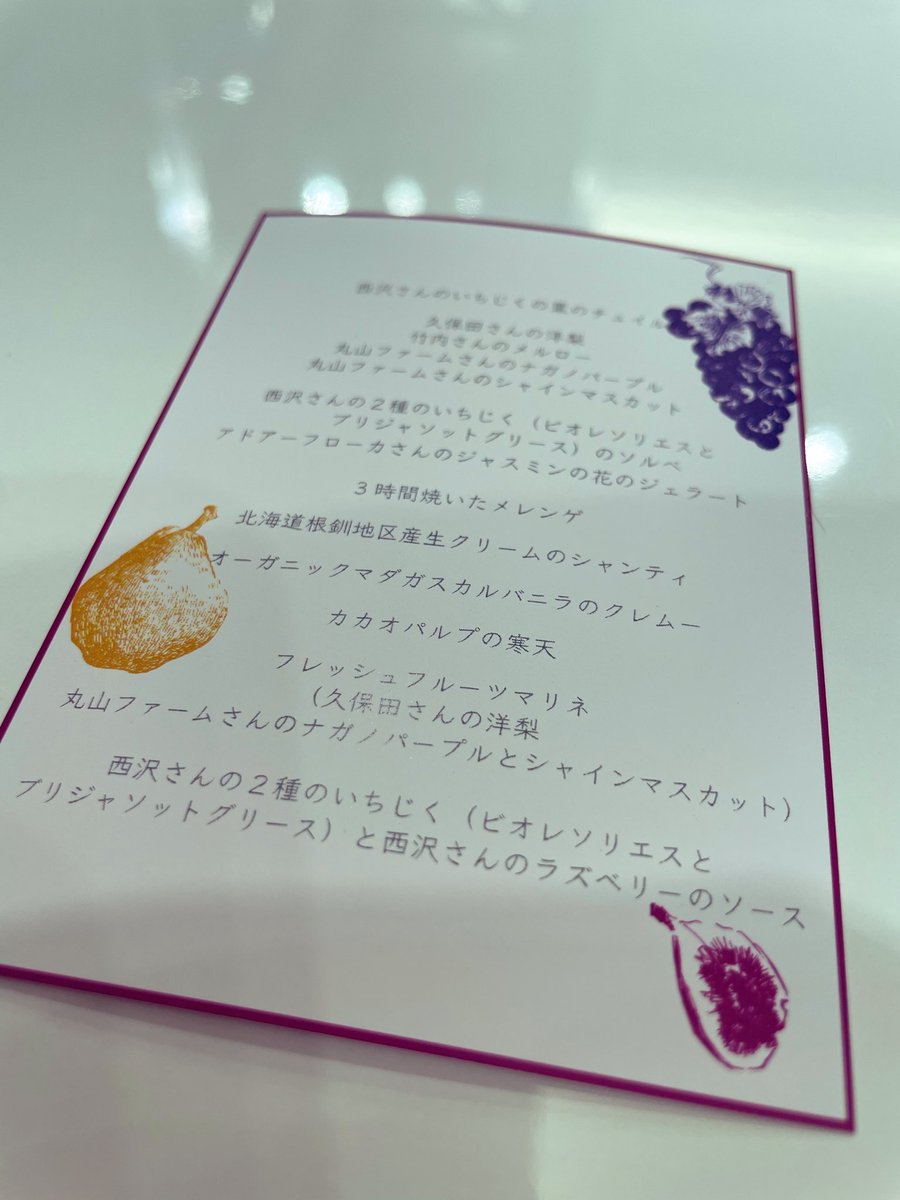 西沢さんのいちじくの葉のチュイル
久保田さんの洋梨
竹内さんのメルロー
丸山ファームさんのナガノパープル
丸山ファームさんのシャインマスカット
西沢さんの2種のいちじく（ビオレソリエスと
ブリジャソットグリース）のソルベ
アドアーフローカさんのジャスミンの花のジェラート
3時間焼いたメレンゲ
北海道根釧地区産生クリームのシャンティ
オーガニックマダガスカルバニラのクレムー
カカオパルプの寒天
フレッシュフルーツマリネ
（久保田さんの洋梨
丸山ファームさんのナガノパープルとシャインマスカット）
西沢さんの2種のいちじく（ビオレソリエスと
ブリジャソットグリース）と西沢さんのラズベリーのソース